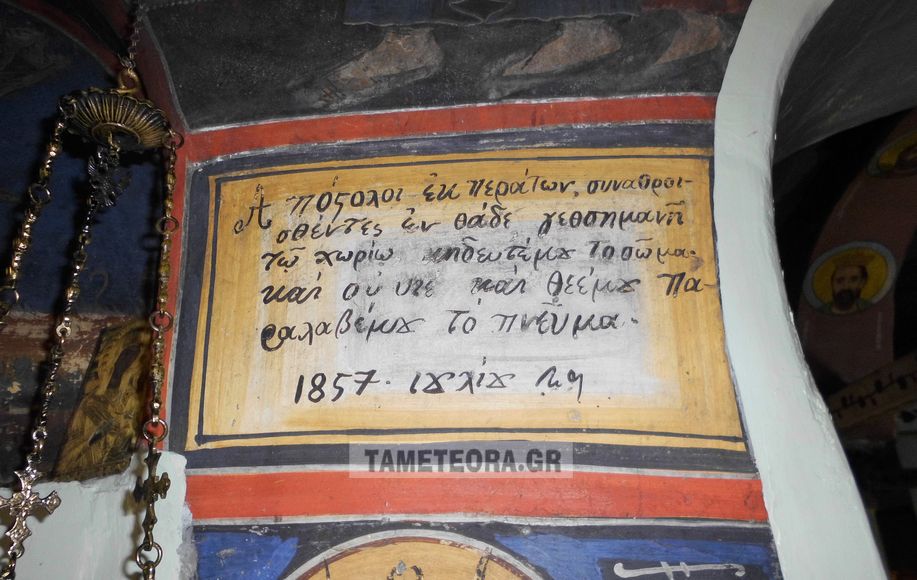 Ἀπόςολοι ἐκ περάτων, συναθροι-
σθέντες ἐν θάδε γεθσημανῆ
τῷ χωρίῳ κηδευτέμȣ τοσῶμα.
καὶ σὺ υιε καὶ θεέμȣ Πα-
ραλαβέμȣ τὸ πνεῦμα.
1857. ιȣλίȣ
TAMETEORA.GR